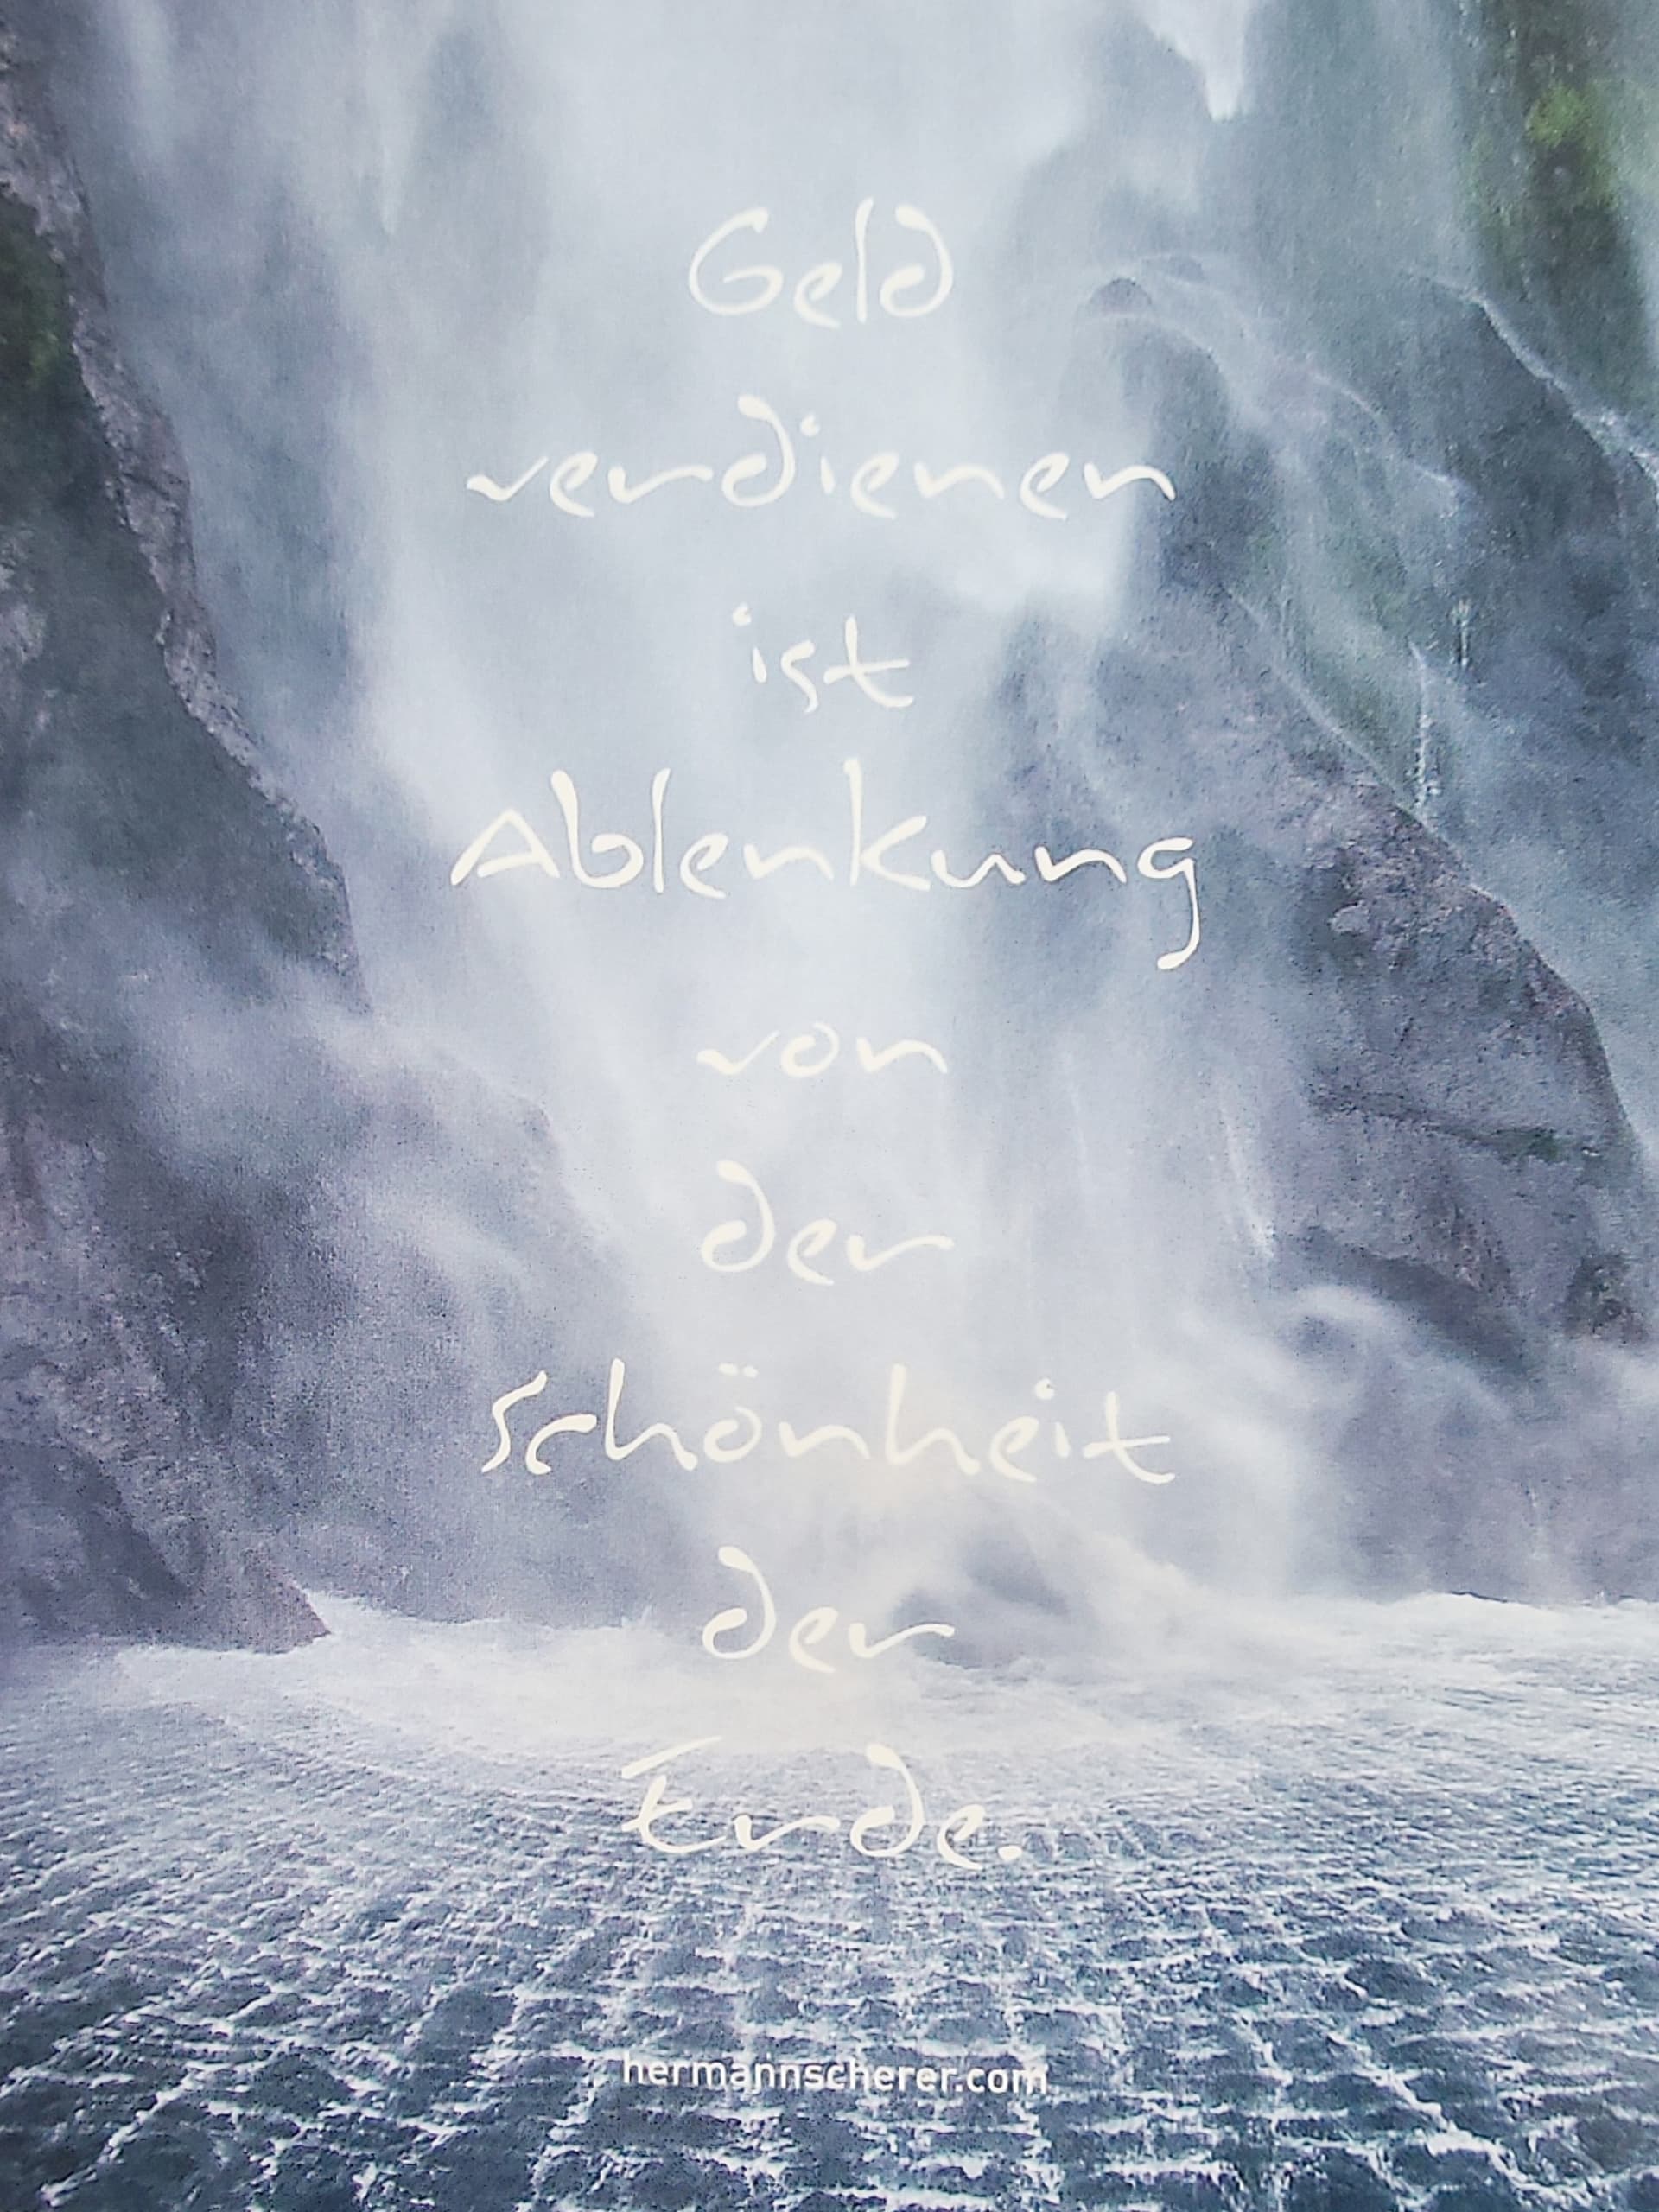 Geld
verdienen
ist
Ablenkung
von
der
Schönheit
der
Erde.
hermannscherer.com